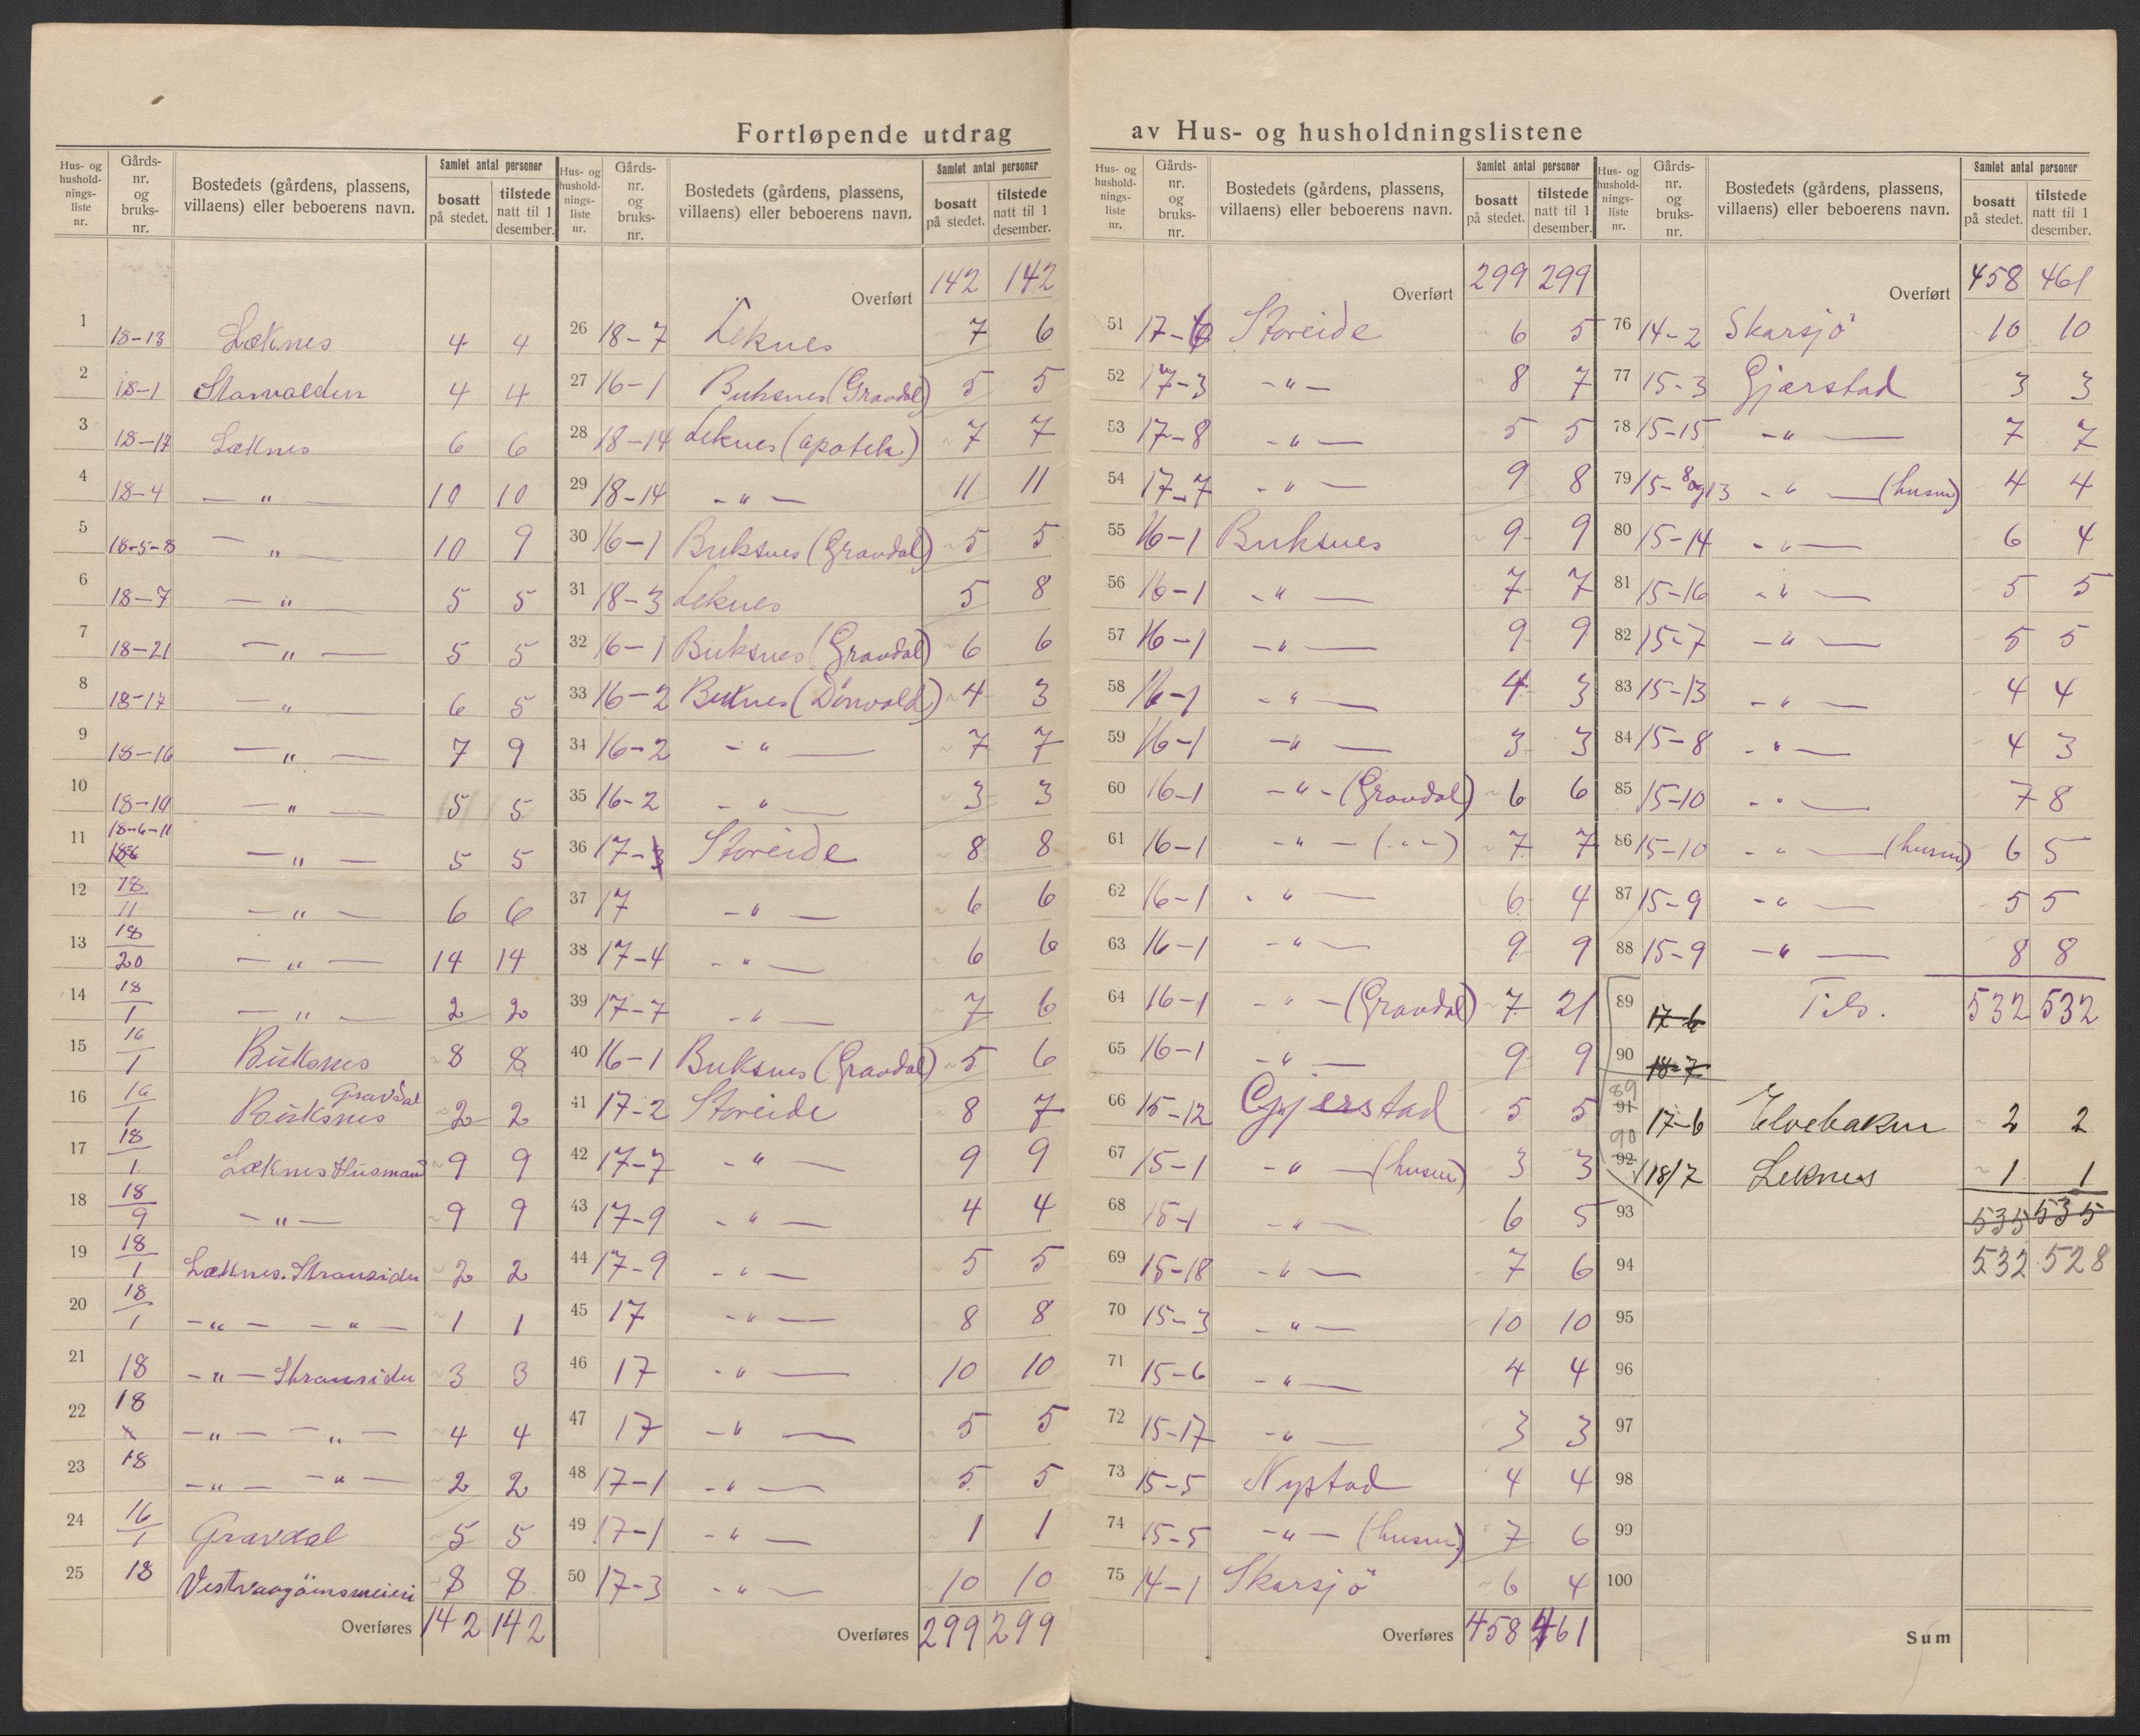 Fortløpende utdrag av Hus- og husholdningslistene
Hus- og hushold- nings- liste nr. | Gårds- nr. og bruks- nr. | Bostedets (gårdens, plassens, villaens) eller beboerens navn. | Samlet antal personer | bosatt på stedet. | tilstede natt til 1 desember.
1 18-13 Læknes 4 4
2 18-1 Starvolden 4 4
3 18-17 Læknes 6 6
4 18-4 — " — 10 10
5 18-5-8 — " — 10 9
6 18-7 — " — 5 5
7 18-21 — " — 5 5
8 18-17 — " — 6 5
9 18-16 — " — 7 9
10 18-19 — " — 5 5
11 18-6-11 — " — 5 5
12 18/11 — " — 6 6
13 18/20 — " — 14 14
14 18/1 — " — 2 2
15 16/1 Buksnes 8 8
16 16/1 Buksnes Gravdal 2 2
17 18/1 Læknes Husmand 9 9
18 18/9 — " — 9 9
19 18/1 Læknes. Stransiden 2 2
20 18/1 — " — — " — 1 1
21 18 — " — Stransiden 3 3
22 18 — " — — " — 4 4
23 18 — " — — " — 2 2
24 16/1 Gravdal 5 5
25 18 Vestvaagöinsmeieri 8 8
Overføres 142 142
Hus- og hushold- nings- liste nr. | Gårds- nr. og bruks- nr. | Bostedets (gårdens, plassens, villaens) eller beboerens navn. | Samlet antal personer | bosatt på stedet. | tilstede natt til 1 desember.
Overført 142 142
26 18-7 Leknes 7 6
27 16-1 Buksnes (Gravdal) 5 5
28 18-14 Leknes (apotek) 7 7
29 18-14 - " - 11 11
30 16-1 Buksnes (Gravdal) 5 5
31 18-3 Leknes 5 8
32 16-1 Buksnes (Gravdal) 6 6
33 16-2 Buknes (Dönvold) 4 3
34 16-2 - " — 7 7
35 16-2 - " — 3 3
36 17- Storeide 8 8
37 17 - " — 6 6
38 17-4 - " — 6 6
39 17-7 - " — 7 6
40 16-1 Buksnes (Gravdal) 5 6
41 17-2 Storeide 8 7
42 17-7 - " — 9 9
43 17-9 - " — 4 4
44 17-9 - " — 5 5
45 17 - " — 8 8
46 17 - " — 10 10
47 17 - " — 5 5
48 17-1 - " — 5 5
49 17-1 - " — 1 1
50 17-3 - " — 10 10
Overføres 299 299
Hus- og hushold- nings- liste nr. | Gårds- nr. og bruks- nr. | Bostedets (gårdens, plassens, villaens) eller beboerens navn. | Samlet antal personer | bosatt på stedet. | tilstede natt til 1 desember.
Overført 299 299
51 17-6 Storeide 6 5
52 17-3 - " - 8 7
53 17-8 - " — 5 5
54 17-7 - " — 9 8
55 16-1 Buksnes 9 9
56 16-1 - " — 7 7
57 16-1 - " — 9 9
58 16-1 - " — 4 3
59 16-1 - " — 3 3
60 16-1 - " - (Gravdal) 6 6
61 16-1 - " - (- " -) 7 7
62 16-1 - " — 6 4
63 16-1 - " — 9 9
64 16-1 - " - (Gravdal) 7 21
65 16-1 - " — 9 9
66 15-12 Gjerstad 5 5
67 15-1 - " — (husm) 3 3
68 15-1 - " — 6 5
69 15-18 - " — 7 6
70 15-3 - " — 10 10
71 15-6 - " — 4 4
72 15-17 - " — 3 3
73 15-5 Nystad 4 4
74 15-5 - " — (husm) 7 6
75 14-1 Skarsjö 6 4
Overføres 458 461
Hus- og hushold- nings- liste nr. | Gårds- nr. og bruks- nr. | Bostedets (gårdens, plassens, villaens) eller beboerens navn. | Samlet antal personer | bosatt på stedet. | tilstede natt til 1 desember.
Overført 458 461
76 14-2 Skarsjö 10 10
77 15-3 Gjærstad 3 3
78 15-15 - " — 7 7
79 15-8 og 13 - " — (husm) 4 4
80 15-14 - " — 6 4
81 15-16 - " — 5 5
82 15-7 - " — 5 5
83 15-13 - " — 4 4
84 15-8 - " — 4 3
85 15-10 - " — 7 8
86 15-10 - " — (husm) 6 5
87 15-9 - " — 5 5
88 15-9 - " — 8 8
89 17-6 Tils. 532 532
90 18-7
91 89 17-6 Elvebaken 2 2
92 90 18/7 Leknes 1 1
93 535 535
94 532 528
95
96
97
98
99
100
Sum